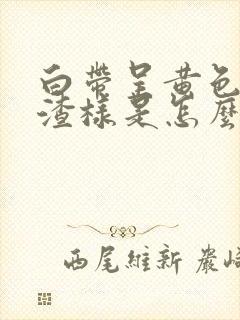 白帶呈黃色
渣樣是怎麼
西尾維新 嚴崎